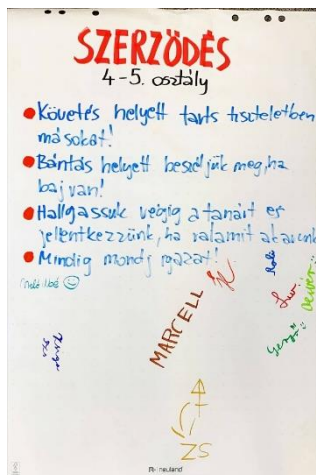 SZERZŐDÉS
4-5. osztály
Követés helyett tarts tiszteletben
másokat!
Bántás helyett beszéljük meg, ha
baj van!
Hallgassuk végig a tanárt és
jelentkezzünk, ha valamit akarunk
Mindig mondj igazat!
MARCELL
ZS
neuland